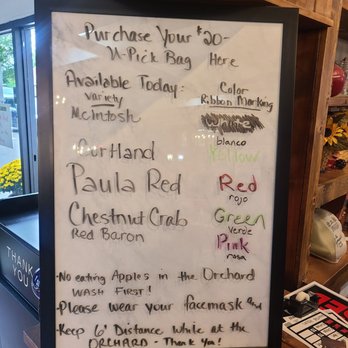 Purchase Your $20-
U-Pick Bag Here
Available Today:
variety
McIntosh
Cortland
Paula Red
Chestnut Crab
Red Baron
Color
Ribbon Marking
blanco
Yellow
Red
rojo
Green
Verde
Pink
rosa
·No eating Apples in the Orchard
WASH FIRST!
·Please wear your facemask and
·Keep 6' Distance while at the
ORCHARD - Thank You!
THANK
YOU